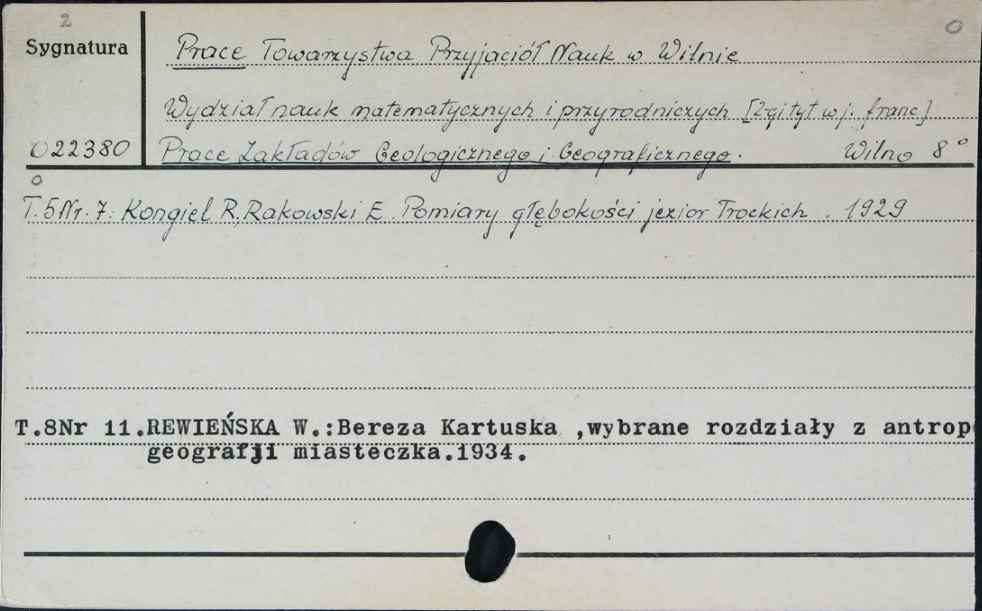 2
O
Sygnatura
Prace Towarzystwa Przyjaciół Nauk w Wilnie
Wydział nauk matematycznych i przyrodniczych [2-gi tyt w j. franc]
O22380 Prace Zakładów Geologicznego i Geograficznego. Wilno 8°
O
T.5 Nr. 7. Kongiel R, Rakowski E Pomiary głębokości jezior Trockich. 1929
T.8Nr 11.REWIEŃSKA W.:Bereza Kartuska ,wybrane rozdziały z antrop
geografji miasteczka.1934.